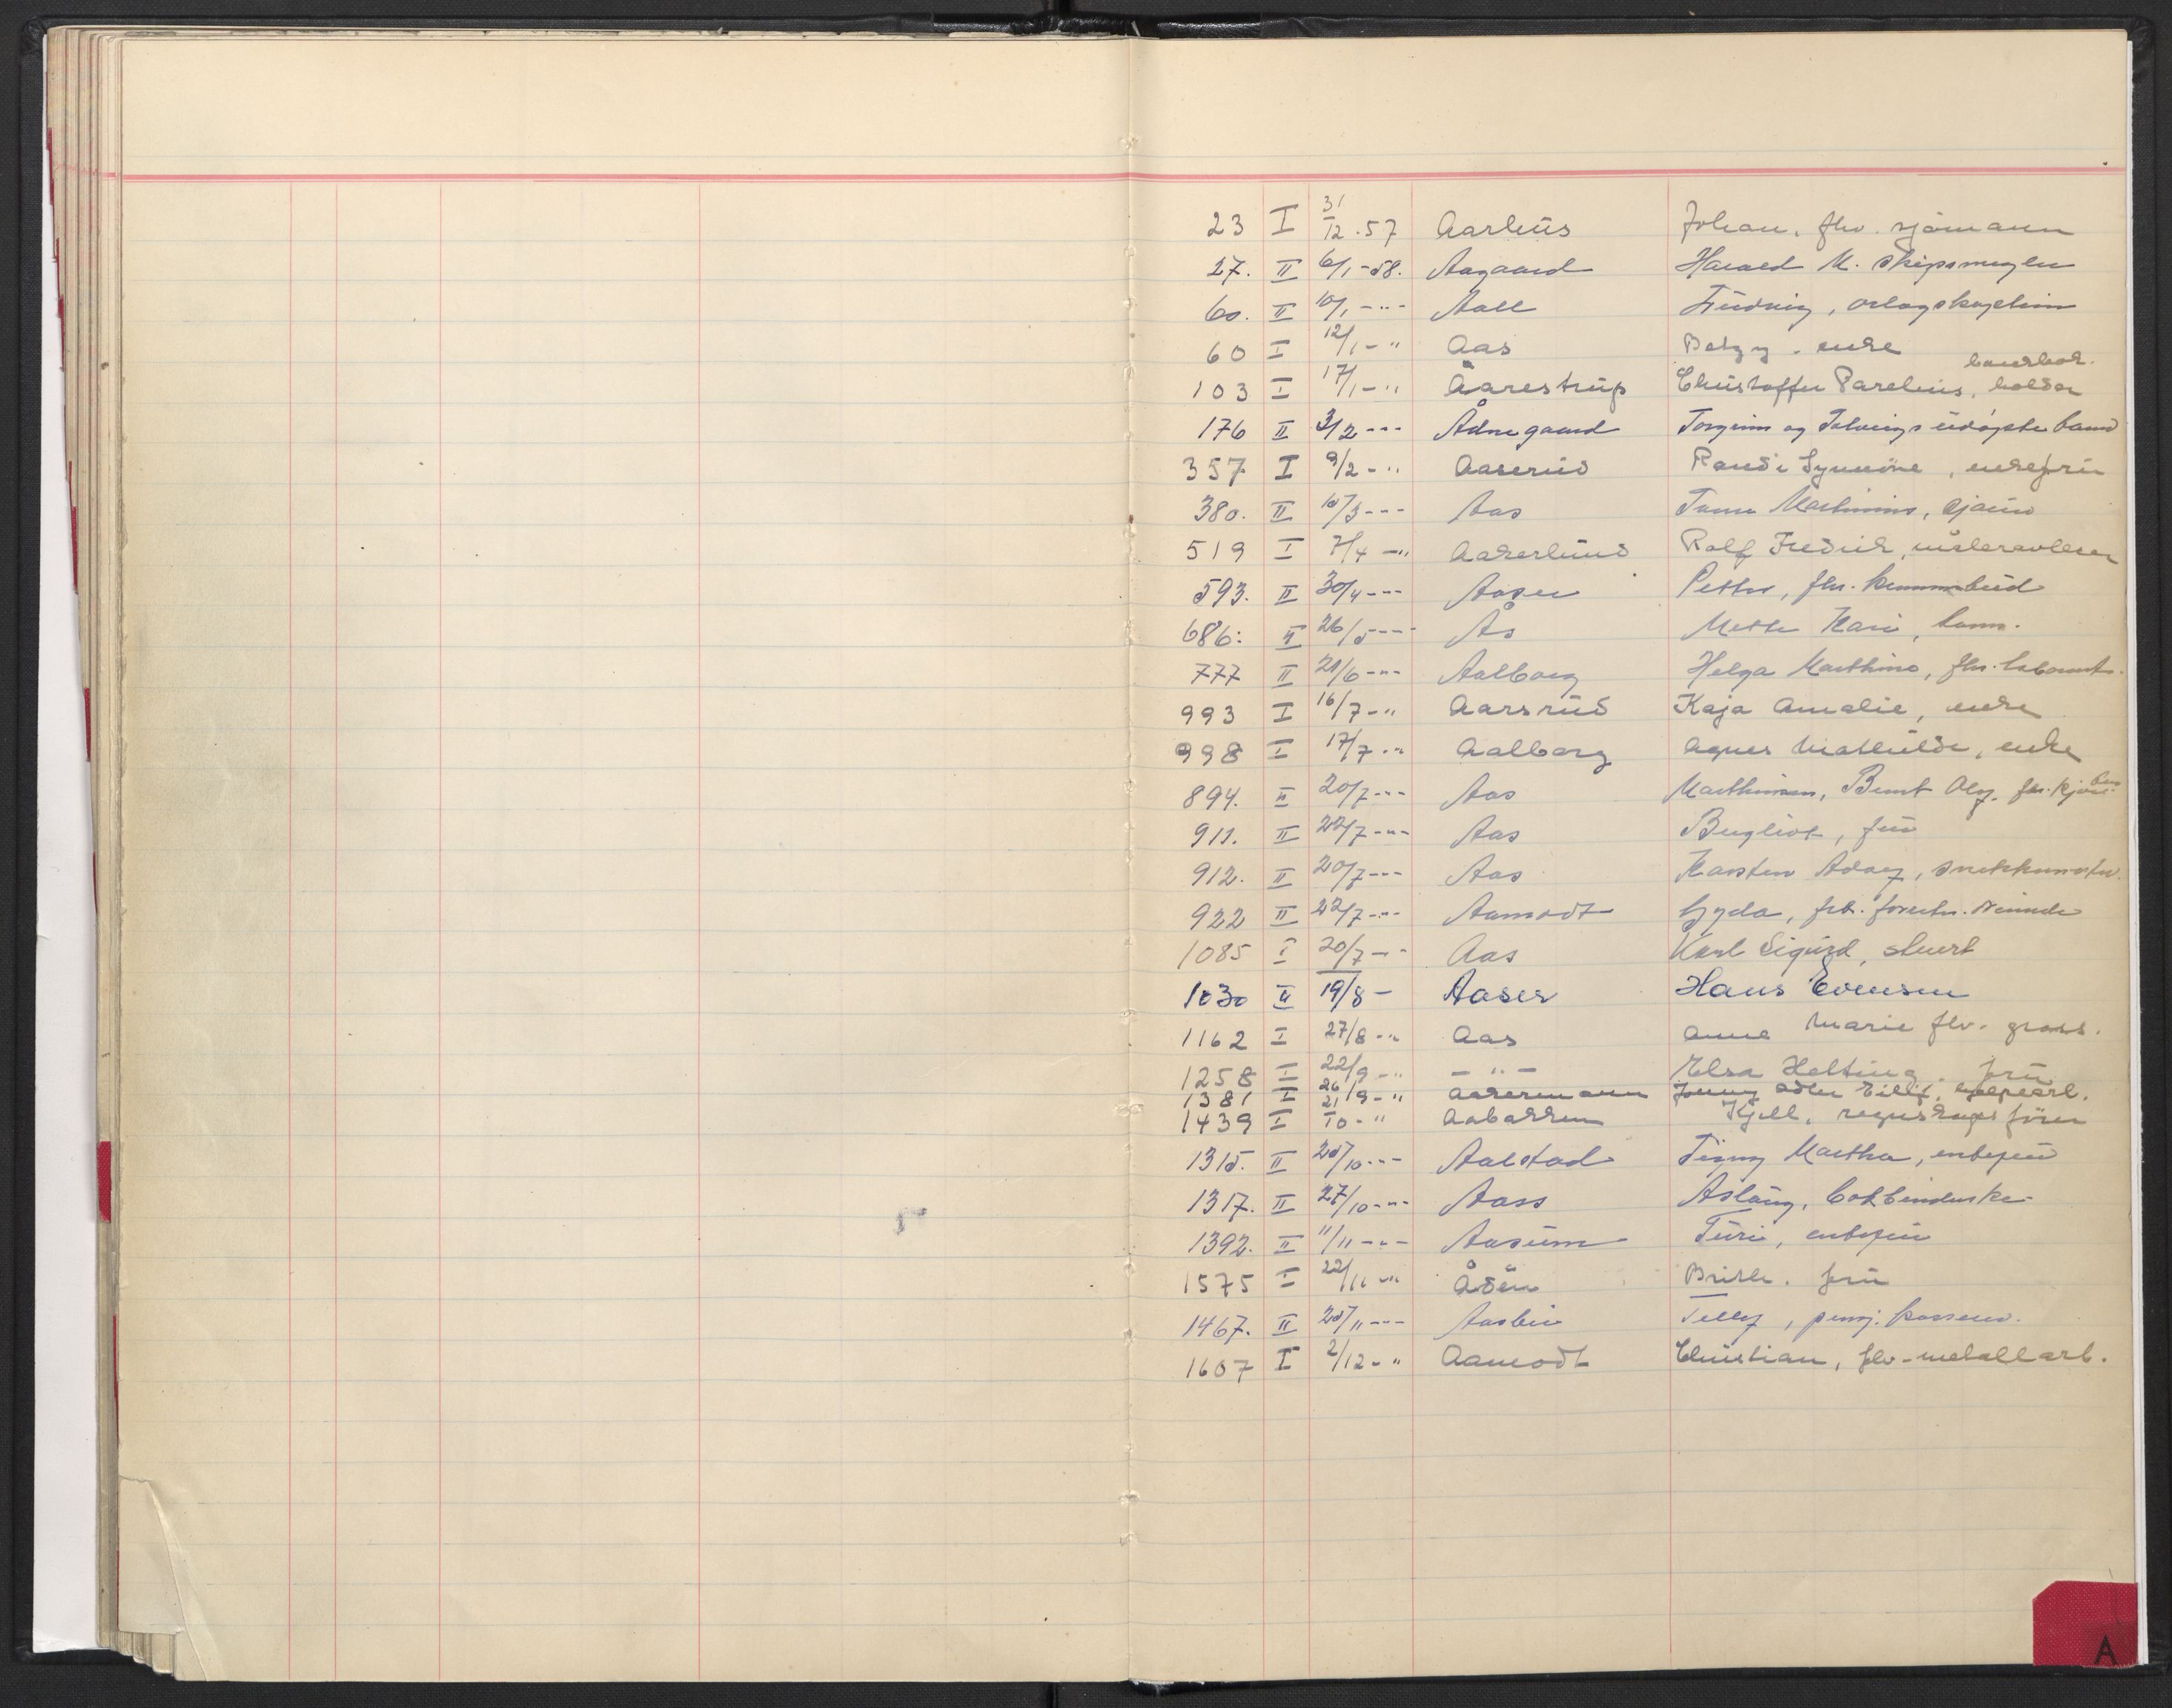 23 I 31/12.57 Aarhus Johan, fhv. sjömann
27. II 6/1-58. Aagaard Harald M. skipsmegler
60. II 10/1 - " - Aall , orlogskaptein
60 I 12/1 - " Aas Betzy. enke
103 I 17/1 - " Aarestrup Christoffer Parelius, bauerbok. holder
176 II 3/2 - " - Ådnegaard Torginn og Solveigs udøpte barn
357 I 9/2 - " Aaserud Randi Synnöve, enkefru
380. II 15/3 - " - Aas Martinius, sjauer
519 I 7/4 - " Aakerlund Rolf Fredrik, måleravleser
593. II 30/4 - " - Aasen Petter, fhv. kemnerbud
686: II 26/5 - " - Ås Mette Kari, barn.
777 II 21/6 - " - Aalborg Helga Marthine, fhv.
993 I 16/7 - " Aarsrud Kaja Amalie, enke
998 I 17/7 - " Aalborg Agnes Mathilde, enke
894. II 20/7 - " - Aas Marthinsen, Bernt Olaf. fhv.
911. II 22/7 - " - Aas Bergliot, fru
912. II 20/7 - " - Aas Karsten Adolf, snekkermester.
922 II 22/7 - " - Aamodt Gyda,
1085 I 20/7 - " - Aas Karl Sigurd, stuert
1030 II 19/8 - Aaser Hans Evensen
1162 I 27/8 - " Aas Anna Marie fhv. gross.
1258 I 22/9 - " - " - Elsa Helting. fru
1381 I 26/9 - " Aakermann Jonny Adler Eilif.
1439 I 21/10 - " Aabakken Kjell. regnskapsförer
1315. II 25/10 - " - Aalstad Signy Martha, enkefru
1317. II 27/10 - " - Aass Aslaug, bokbinderske
1392. II 11/11 - " - Aasum Turi, enkefru
1575 I 22/11 - " Ådën fru
1467. II 25/11 - " - Aasbu Telly, pensj. kasserer.
1607 I 2/12 - " Aamodt Christian, fhv. metallarb.
A